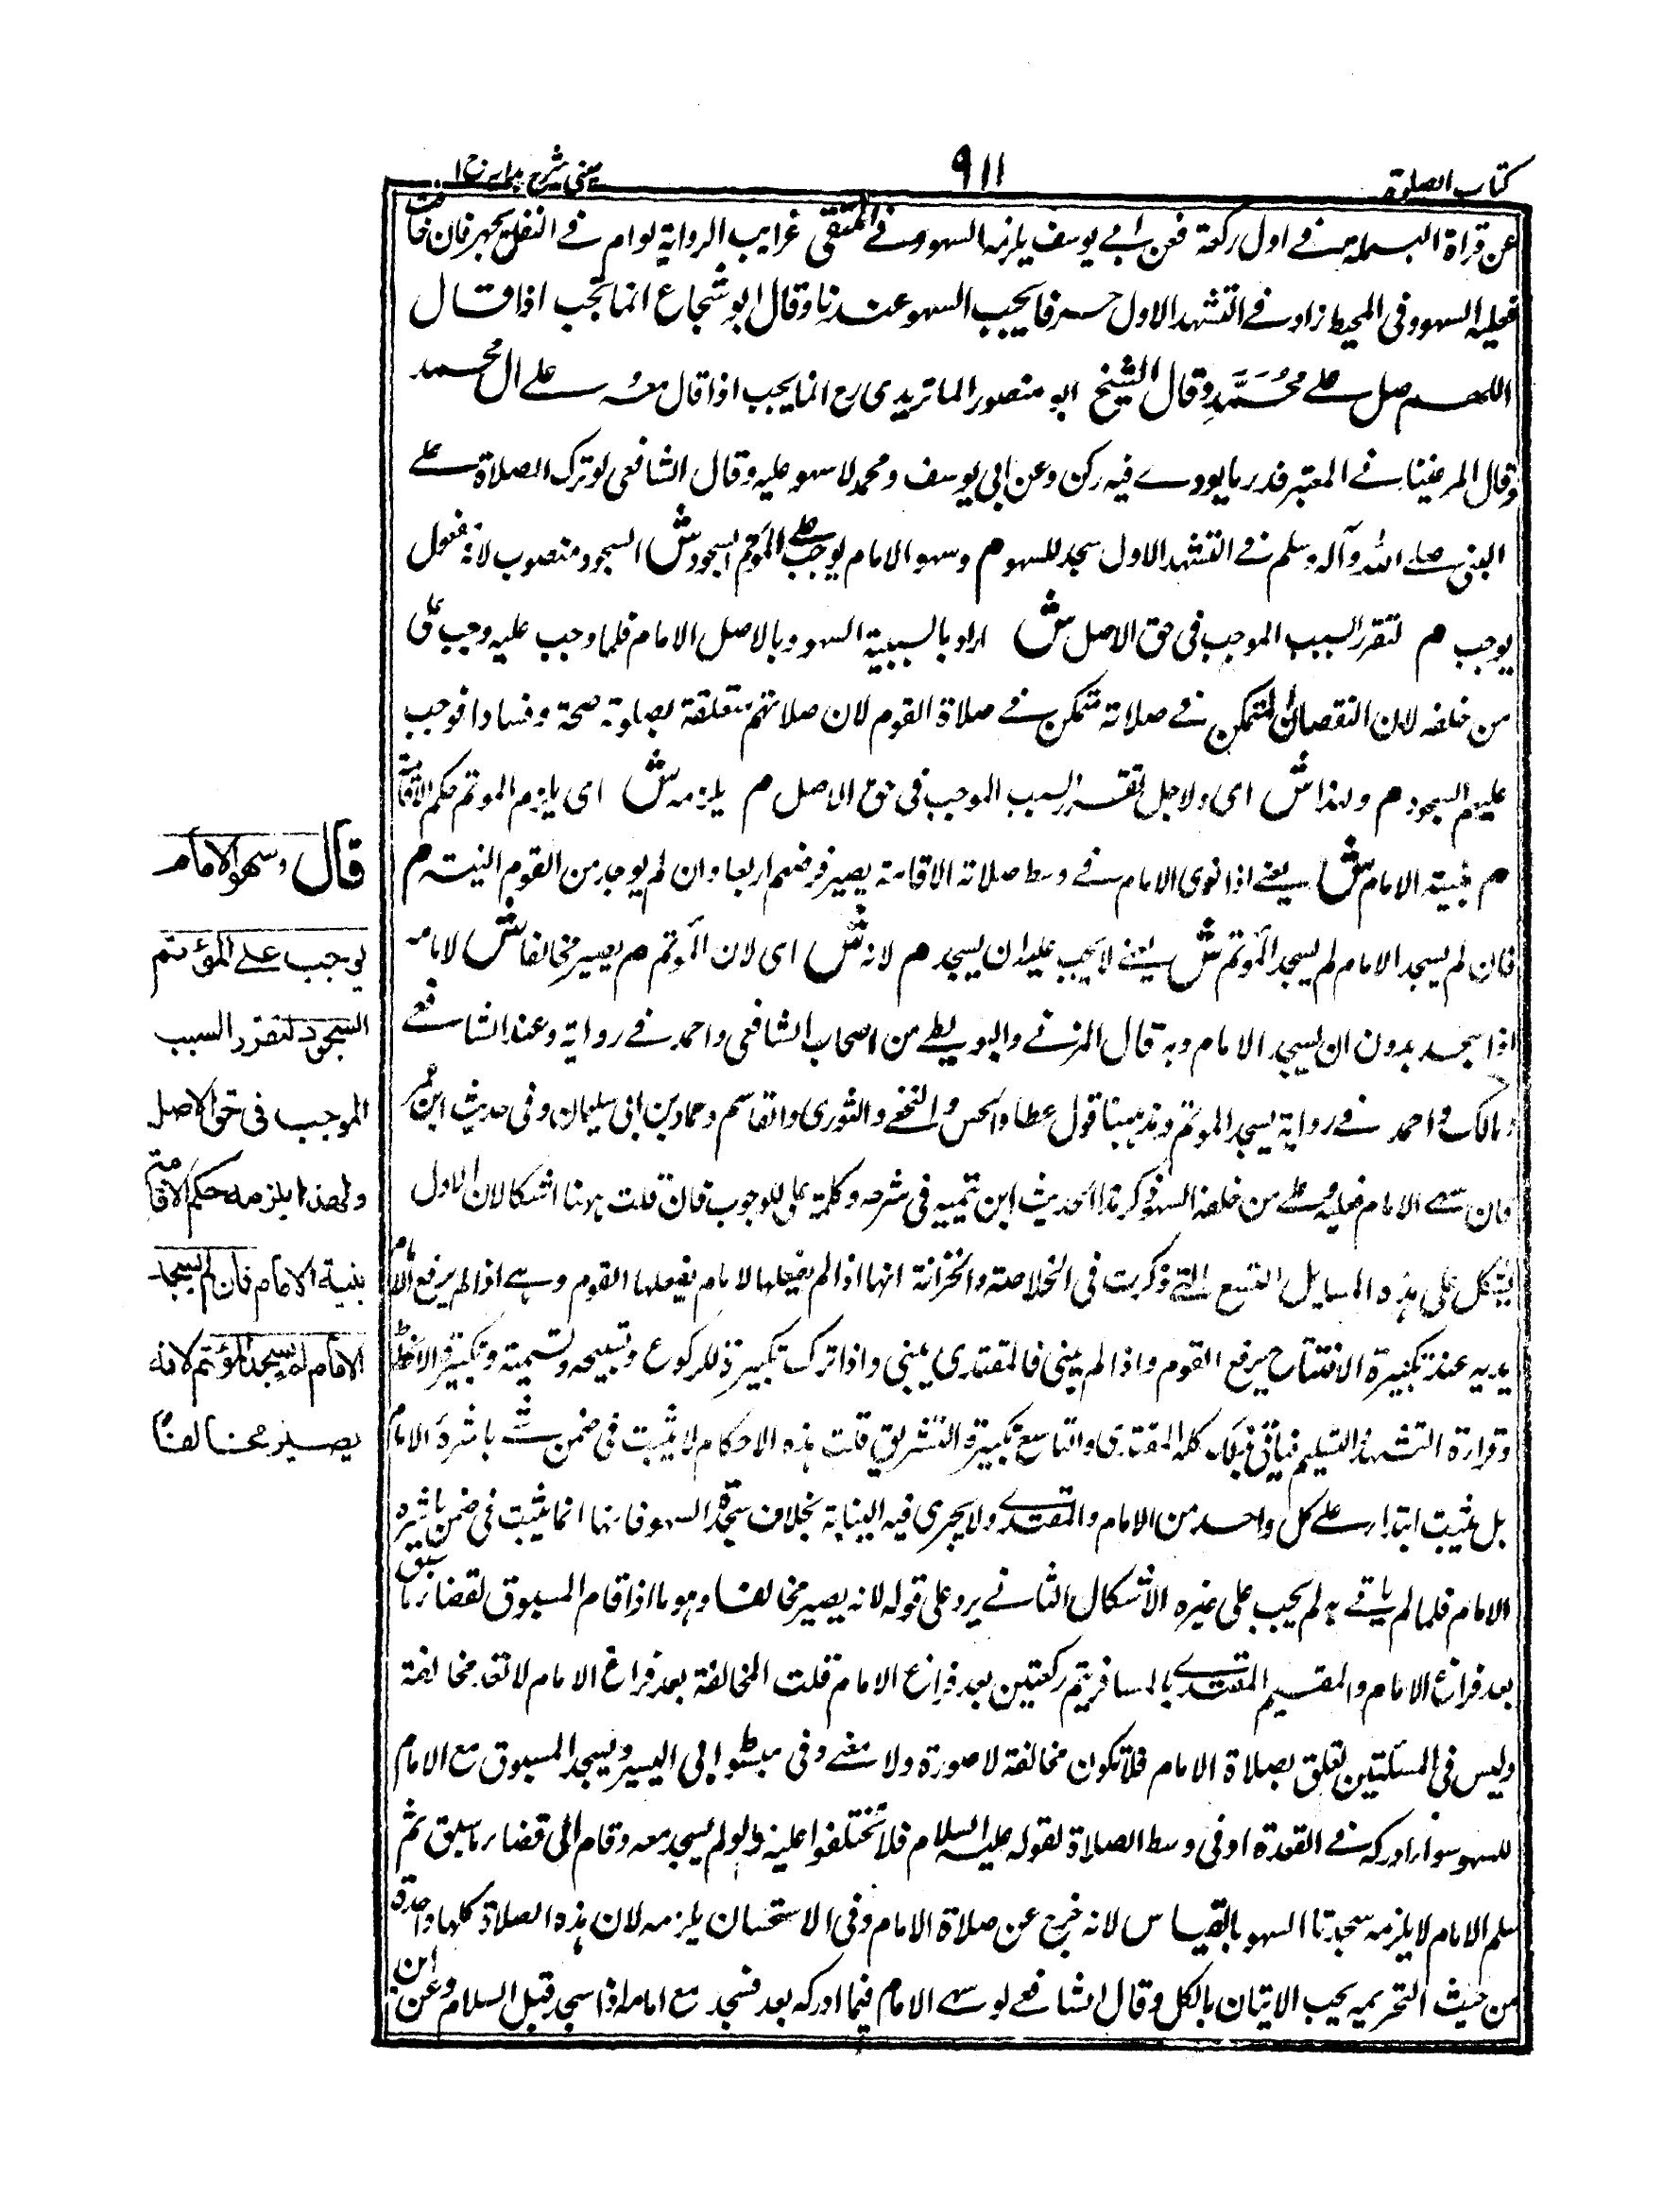 كتاب الصلوة
٩١١
عيني شرح هدايه ج ١
عن قراة البسملة في اول ركعة فعن ابي يوسف يلزمه السهو وفي المنتقى غرايب الرواية لوام في النفل يجهر فان خافت
فعليه السهو وفى المحيط زاد في التشهد الاول حرفا يجب السهو عندنا وقال ابو شجاع انما تجب اذا قال
اللهم صل على محمد وقال الشيخ ابو منصور الماتريدى رح انما يجب اذا قال معه وعلى ال محمد
وقال المرغينانے المعتبر قدر ما يودے فيه ركن وعن ابي يوسف ومحمد لا سهو عليه وقال الشافعى لو ترك الصلاة على
النبي صلى الله وآله وسلم في التشهد الاول سجد للسهو م وسهو الامام يوجب على المؤتم السجود ش السجود منصوب لانه مفعول
يوجب م لتقرر السبب الموجب فى حق الاصل ش اراد بالسببية السهو وبالاصل الامام فلما وجب عليه وجب على
من خلفه لان النقصان المتمكن في صلاته تتمكن في صلاة القوم لان صلاتهم متعلقة بصلوته صحة وفسادا فوجب
عليهم السجود م ولهذا ش اى ولاجل تقرر السبب الموجب فى حق الاصل م يلزمه ش اى يلزم الموتم حكم الاقامة
م بنية الامام ش يعنے اذا نوى الامام في وسط صلاته الاقامة يصير فرضهم اربعا وان لم يوجد من القوم النية م
فان لم يسجد الامام لم يسجد المؤتم ش يعنے لا يجب عليه ان يسجد م لانه ش اى لان المؤتم م يصير مخالفا ش لامامه
اذا سجد بدون ان يسجد الامام وبه قال المزنے والبويطے من اصحاب الشافعى واحمد في رواية وعند الشافعے
ومالك واحمد في رواية يسجد الموتم ومذهبنا قول عطاء والحسن والنخعے والثورى والقاسم وحماد بن ابى سليمان وفى حديث ابن عمر
فان سهے الامام فعليه وعلى من خلفه السهو ذكر هذا الحديث ابن تيمية فى شرحه وكلمة على للوجوب فان قلت ههنا اشكالان الاول
يشكل على هذه المسايل التسع التے ذكرت فى الخلاصة والخزانة انها اذا لم يفعلها الامام يفعلها القوم وهے اذا لم يرفع الامام
يديه عند تكبيرة الافتتاح يرفع القوم واذا لم يثنى فالمقتدى يثنى واذا ترك تكبيرة للركوع وتسبيحه وتسميته وتكبيرة الانحطاط
وقراءة التشهد والتسليم فياتى بذلك كله المقتدى والتاسع تكبيرة التشريق قلت هذه الاحكام لا يثبت فى ضمن شے باشره الامام
بل يثبت ابتداء على كل واحد من الامام والمقتدے ولا يجرى فيه النيابة بخلاف سجدة السهو فانها انما يثبت فى ضمن باشره
الامام فلما لم ياتے به لم يجب على غيره الاشكال الثانے يرد على قوله لانه يصير مخالفا وهو ما اذا قام المسبوق لقضاء ما سبق
بعد فراغ الامام والمقيم المقتدے بالمسافر يتم ركعتين بعد فراغ الامام قلت المخالفة بعد فراغ الامام لا تعد مخالفة
وليس فى المسئلتين تعلق بصلاة الامام فلا تكون مخالفة لا صورة ولا معنے وفى مبسوط ابى اليسر ويسجد المسبوق مع الامام
للسهو سواء ادركه في القعدة او فى وسط الصلاة لقوله عليه السلام فلا تختلفوا عليه ولو لم يسجد معه وقام الى قضاء ما سبق ثم
سلم الامام لا يلزمه سجدتا السهو بالقياس لانه خرج عن صلاة الامام وفى الاستحسان يلزمه لان هذه الصلاة كلها واحدة
من حيث التحريمه يجب الاتيان بالكل وقال الشافعے لو سهے الامام فيما ادركه بعد فسجد مع امامه اذا سجد قبل السلام وعن ابن
قال وسهو الامام
يوجب على المؤتم
السجود لتقرر السبب
الموجب فى حق الاصل
ولهذا يلزمه حكم الاقامة
بنية الامام فان لم يسجد
الامام لم يسجد المؤتم لانه
يصير مخالفا